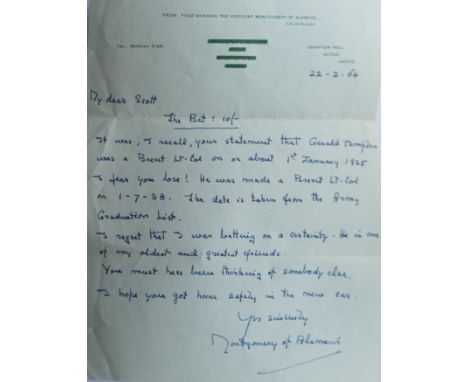 FROM: FIELD MARSHAL THE VISCOUNT MONTGOMERY OF ALAMEIN,
K.G. G.C.B. D.S.O.
TEL. BENTLEY 3126.
ISINGTON MILL,
ALTON,
HANTS.
22-2-64
My dear Scott
The Bet: 10/-
It was, I recall, your statement that Gerald Templer
was a Brevet Lt-Col on or about 1st January 1935
I fear you lose! He was made a Brevet Lt-Col
on 1-7-38. The date is taken from the Army
Graduation List.
I regret that I was betting on a certainty. He is one
of my oldest and greatest friends.
You must have been thinking of somebody else.
I hope you got home safely in the new car.
Yrs sincerely
Montgomery of Alamein